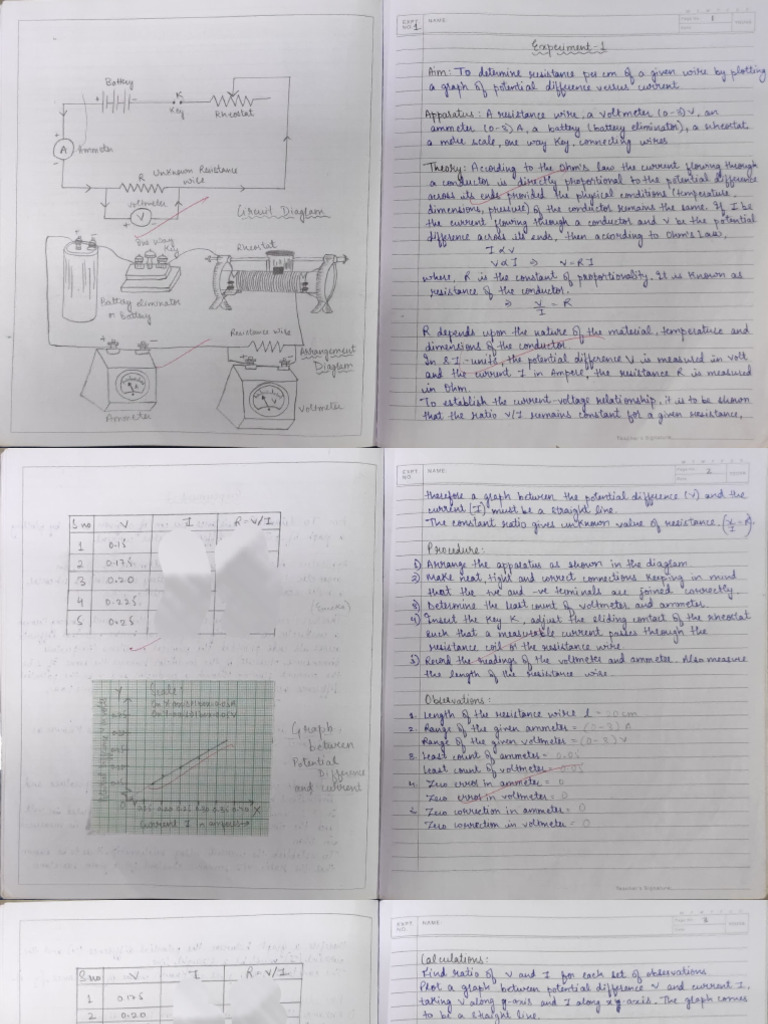 Battery
K
Key
Rheostat
A
Ammeter
R
Unknown Resistance
wire
Voltmeter
V
Circuit Diagram
One Way
Key
Rheostat
Battery eliminator
or Battery
Resistance wire
Arrangement
Diagram
A
V
Ammeter
Voltmeter
EXPT.
NO. 1
NAME:
Page No. 1
Experiment-1
Aim: To determine resistance per cm of a given wire by plotting
a graph of potential difference versus current.
Apparatus: A resistance wire, a voltmeter (0-3) V, an
ammeter (0-3) A, a battery (battery eliminator), a rheostat
a metre scale, one way key, connecting wires
Theory: According to the Ohm's law the current flowing through
a conductor is directly proportional to the potential difference
across its ends provided the physical conditions (temperature
dimensions, pressure) of the conductor remains the same. If I be
the current flowing through a conductor and V be the potential
difference across its ends, then according to Ohm's Law,
I ∝ V
V ∝ I ⇒ V = RI
where, R is the constant of proportionality. It is known as
resistance of the conductor.
⇒ V/I = R
R depends upon the nature of the material, temperature and
dimensions of the conductor
In S.I-units, the potential difference V is measured in volt
and the current I in Ampere, the resistance R is measured
in Ohm.
To establish the current-voltage relationship, it is to be shown
that the ratio V/I remains constant for a given resistance,
Teacher's Signature
S no V I R = V/I
1 0.15
2 0.175
3 0.20
4 0.225
5 0.25
Scale:
Y
X
0
Current I in amperes →
Graph
between
Potential
Difference
and current
EXPT.
NO.
NAME:
Page No. 2
therefore a graph between the potential difference (V) and the
current (I) must be a straight line.
The constant ratio gives unknown value of resistance. (V/I = R)
Procedure:
1) Arrange the apparatus as shown in the diagram
2) Make neat, tight and correct connections keeping in mind
that the +ve and -ve terminals are joined correctly.
3) Determine the least count of voltmeter and ammeter.
4) Insert the key K, adjust the sliding contact of the rheostat
such that a measurable current passes through the
resistance coil or the resistance wire
5) Record the readings of the voltmeter and ammeter. Also measure
the length of the resistance wire.
Observations:
1. Length of the resistance wire l = 20 cm
2. Range of the given ammeter = (0-3) A
Range of the given voltmeter = (0-3) V
3. Least count of ammeter = 0.05
Least count of voltmeter = 0.05
4. Zero error in ammeter = 0
Zero error in voltmeter = 0
Zero correction in ammeter = 0
Zero correction in voltmeter = 0
Teacher's Signature
S no V I R = V/I
1 0.175
2 0.20
EXPT.
NO.
NAME:
Page No. 3
Calculations:
Find ratio of V and I for each set of observations
Plot a graph between potential difference V and current I,
taking V along y-axis and I along x axis. The graph comes
to be a straight line.